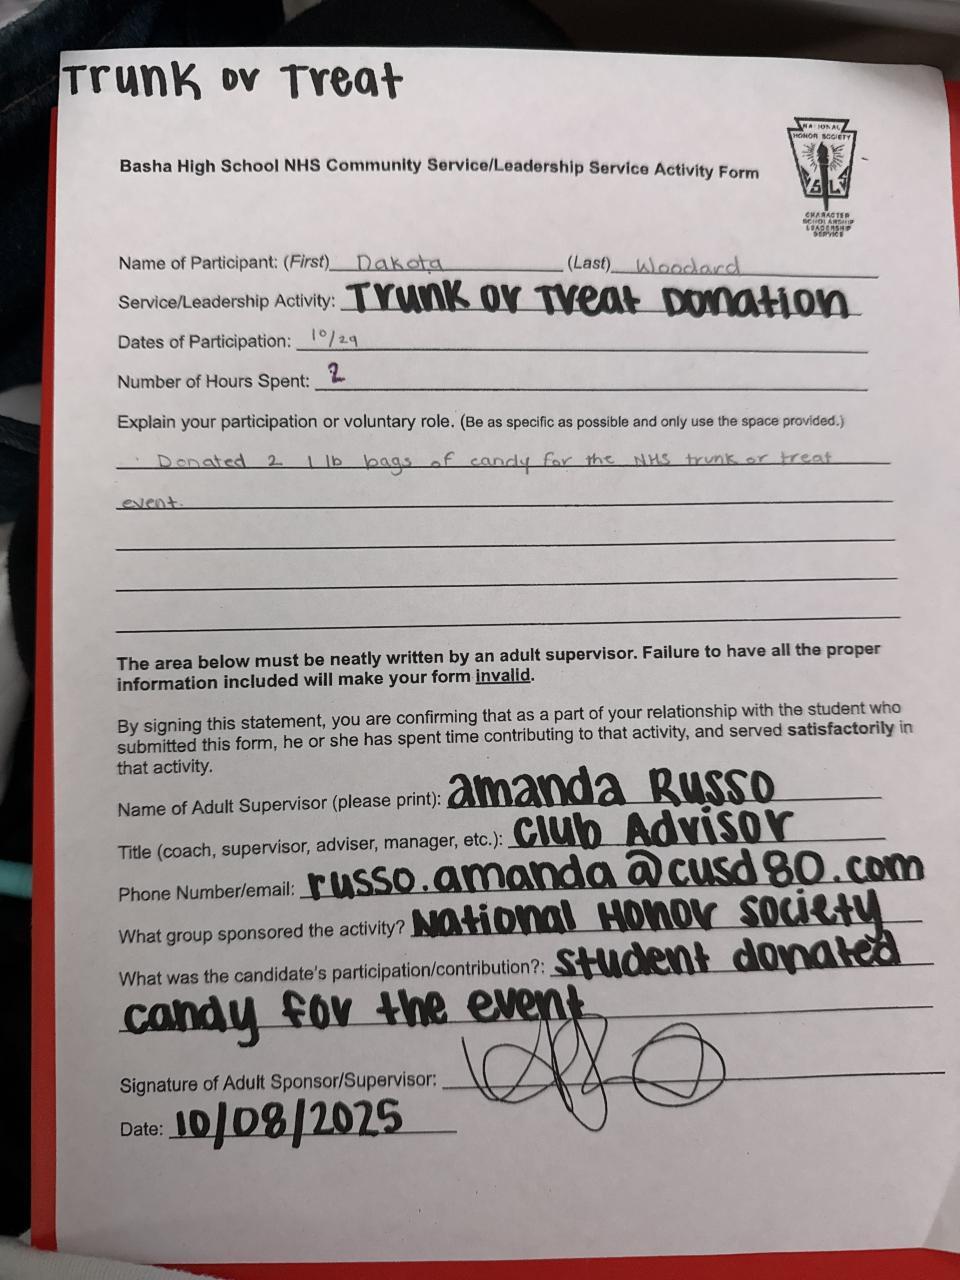 Trunk or Treat
NATIONAL
HONOR SOCIETY
CHARACTER
SCHOLARSHIP
LEADERSHIP
SERVICE
Basha High School NHS Community Service/Leadership Service Activity Form
Name of Participant: (First) Dakota (Last) Woodard
Service/Leadership Activity: Trunk or Treat Donation
Dates of Participation: 10/29
Number of Hours Spent: 2
Explain your participation or voluntary role. (Be as specific as possible and only use the space provided.)
Donated 2 1 lb bags of candy for the NHS trunk or treat
event.
The area below must be neatly written by an adult supervisor. Failure to have all the proper
information included will make your form invalid.
By signing this statement, you are confirming that as a part of your relationship with the student who
submitted this form, he or she has spent time contributing to that activity, and served satisfactorily in
that activity.
Name of Adult Supervisor (please print): amanda Russo
Title (coach, supervisor, adviser, manager, etc.): Club Advisor
Phone Number/email: russo.amanda@cusd80.com
What group sponsored the activity? National Honor Society
What was the candidate's participation/contribution?: student donated
candy for the event
Signature of Adult Sponsor/Supervisor:
Date: 10/08/2025